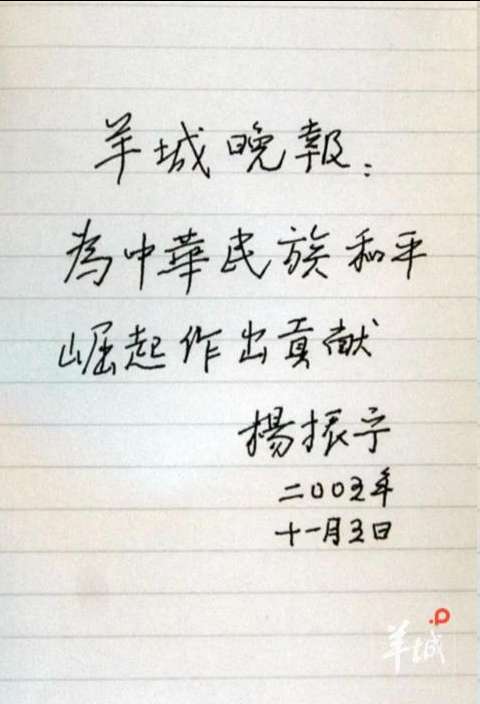 羊城晚報：
為中華民族和平
崛起作出貢献
楊振宁
二〇〇五年
十一月五日
羊城